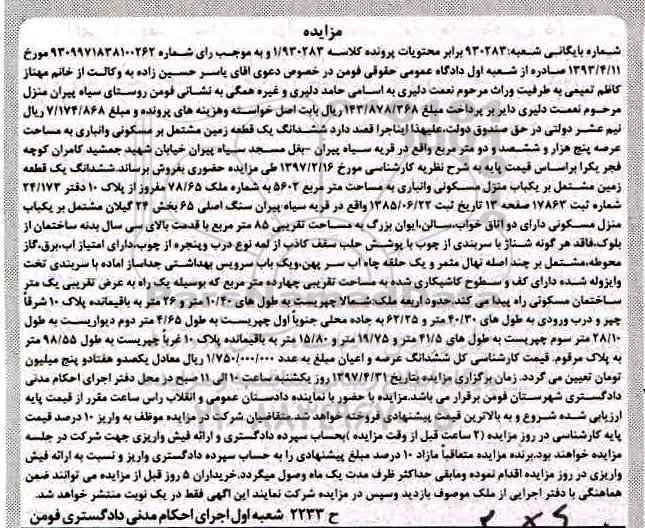 مزایده
شماره بایگانی شعبه:۹۳۰۲۸۳ برابر محتویات پرونده کلاسه ۱/۹۳۰۲۸۳ و به موجب رای شماره ۹۳۰۹۹۷۱۸۳۸۱۰۰۲۶۲ مورخ
۱۳۹۳/۴/۱۱ صادره از شعبه اول دادگاه عمومی حقوقی فومن در خصوص دعوی اقای یاسر حسین زاده به وکالت از خانم مهناز
کاظم تمیمی به طرفیت وراث مرحوم نعمت دلیری به اسامی حامد دلیری و غیره همگی به نشانی فومن روستای سیاه پیران منزل
مرحوم نعمت دلیری دایر بر پرداخت مبلغ ۱۴۳/۸۷۸/۳۶۸ ریال بابت اصل خواسته وهزینه های پرونده و مبلغ ۷/۱۷۴/۸۶۸ ریال
نیم عشر دولتی در حق صندوق دولت،علیهذا ایناجرا قصد دارد ششدانگ یک قطعه زمین مشتمل بر مسکونی وانباری به مساحت
عرصه پنج هزار و ششصد و دو متر مربع واقع در قریه سیاه پیران -بغل مسجد سیاه پیران خیابان شهید جمشید کامران کوچه
فجر یکرا براساس قیمت پایه به شرح نظریه کارشناسی مورخ ۱۳۹۷/۲/۱۶ طی مزایده حضوری بفروش برساند.ششدانگ یک قطعه
زمین مشتمل بر یکباب منزل مسکونی وانباری به مساحت متر مربع ۵۶۰۲ به شماره ملک ۷۸/۶۵ مفروز از پلاک ۱۰ دفتر ۲۴/۱۷۳
شماره ثبت ۱۷۸۶۳ صفحه ۱۳ تاریخ ثبت ۱۳۸۵/۰۶/۲۲ واقع در قریه سیاه پیران سنگ اصلی ۶۵ بخش ۲۴ گیلان مشتمل بر یکباب
منزل مسکونی دارای دو اتاق خواب،سالن،ایوان بزرگ به مساحت تقریبی ۸۵ متر مربع با قدمت بالای سی سال بدنه ساختمان از
بلوک،فاقد هر گونه شناژ با سربندی از چوب با پوشش حلب سقف کاذب از لمه نوع درب وپنجره از چوب،دارای امتیاز اب،برق،گاز
محوطه،مشتمل بر چند اصله نهال مثمر و یک حلقه چاه اب سر پهن،ویک باب سرویس بهداشتی جداساز اماده با سربندی تخت
وایزوله شده دارای کف و سطوح کاشیکاری شده به مساحت تقریبی چهارده متر مربع که بوسیله یک راه به عرض تقریبی یک متر
ساختمان مسکونی راه پیدا می کند.حدود اربعه ملک:شمالا چهریست به طول های ۱۰/۴۰ متر و ۲۶ متر به باقیمانده پلاک ۱۰ شرقاً
چپر و درب ورودی به طول های ۴۰/۳۰ متر و ۶۲/۲۵ به جاده محلی جنوباً اول چپریست به طول ۴/۶۵ متر دوم دیواریست به طول
۲۸/۱۰ متر سوم چپریست به طول های ۴۱/۵ متر و ۱۹/۷۵ متر و ۱۵/۸۰ متر به باقیمانده پلاک ۱۰ غرباً چپریست به طول ۹۸/۵۵ متر
به پلاک مرقوم. قیمت کارشناسی کل ششدانگ عرصه و اعیان مبلغ به عدد ۱/۷۵۰/۰۰۰/۰۰۰ ریال معادل یکصدو هفتادو پنج میلیون
تومان تعیین می گردد. زمان برگزاری مزایده بتاریخ ۱۳۹۷/۴/۳۱ روز یکشنبه،ساعت ۱۰ الی ۱۱ صبح در محل دفتر اجرای احکام مدنی
دادگستری شهرستان فومن برقرار می باشد.مزایده با حضور یا نماینده دادستان عمومی و انقلاب راس ساعت مقرر از قیمت پایه
ارزیابی شده شروع و به بالاترین قیمت پیشنهادی فروخته خواهد شد.متقاضیان شرکت در مزایده موظف به واریز ۱۰ درصد قیمت
پایه کارشناسی در روز مزایده (۲ ساعت قبل از وقت مزایده )بحساب سپرده دادگستری و ارائه فیش واریزی جهت شرکت در جلسه
مزایده خواهند بود.برنده مزایده متعاقباً مازاد ۱۰ درصد مبلغ پیشنهادی را به حساب سپرده دادگستری واریز و نسبت به ارائه فیش
واریزی در روز مزایده اقدام نموده ومابقی حداکثر ظرف مدت یک ماه وصول میگردد.خریداران ۵ روز قبل از مزایده می توانند ضمن
هماهنگی با دفتر اجرایی از ملک موصوف بازدید وسپس در مزایده شرکت نمایند این اگهی فقط در یک نوبت منتشر خواهد شد.
ح ۲۲۳۳ شعبه اول اجرای احکام مدنی دادگستری فومن